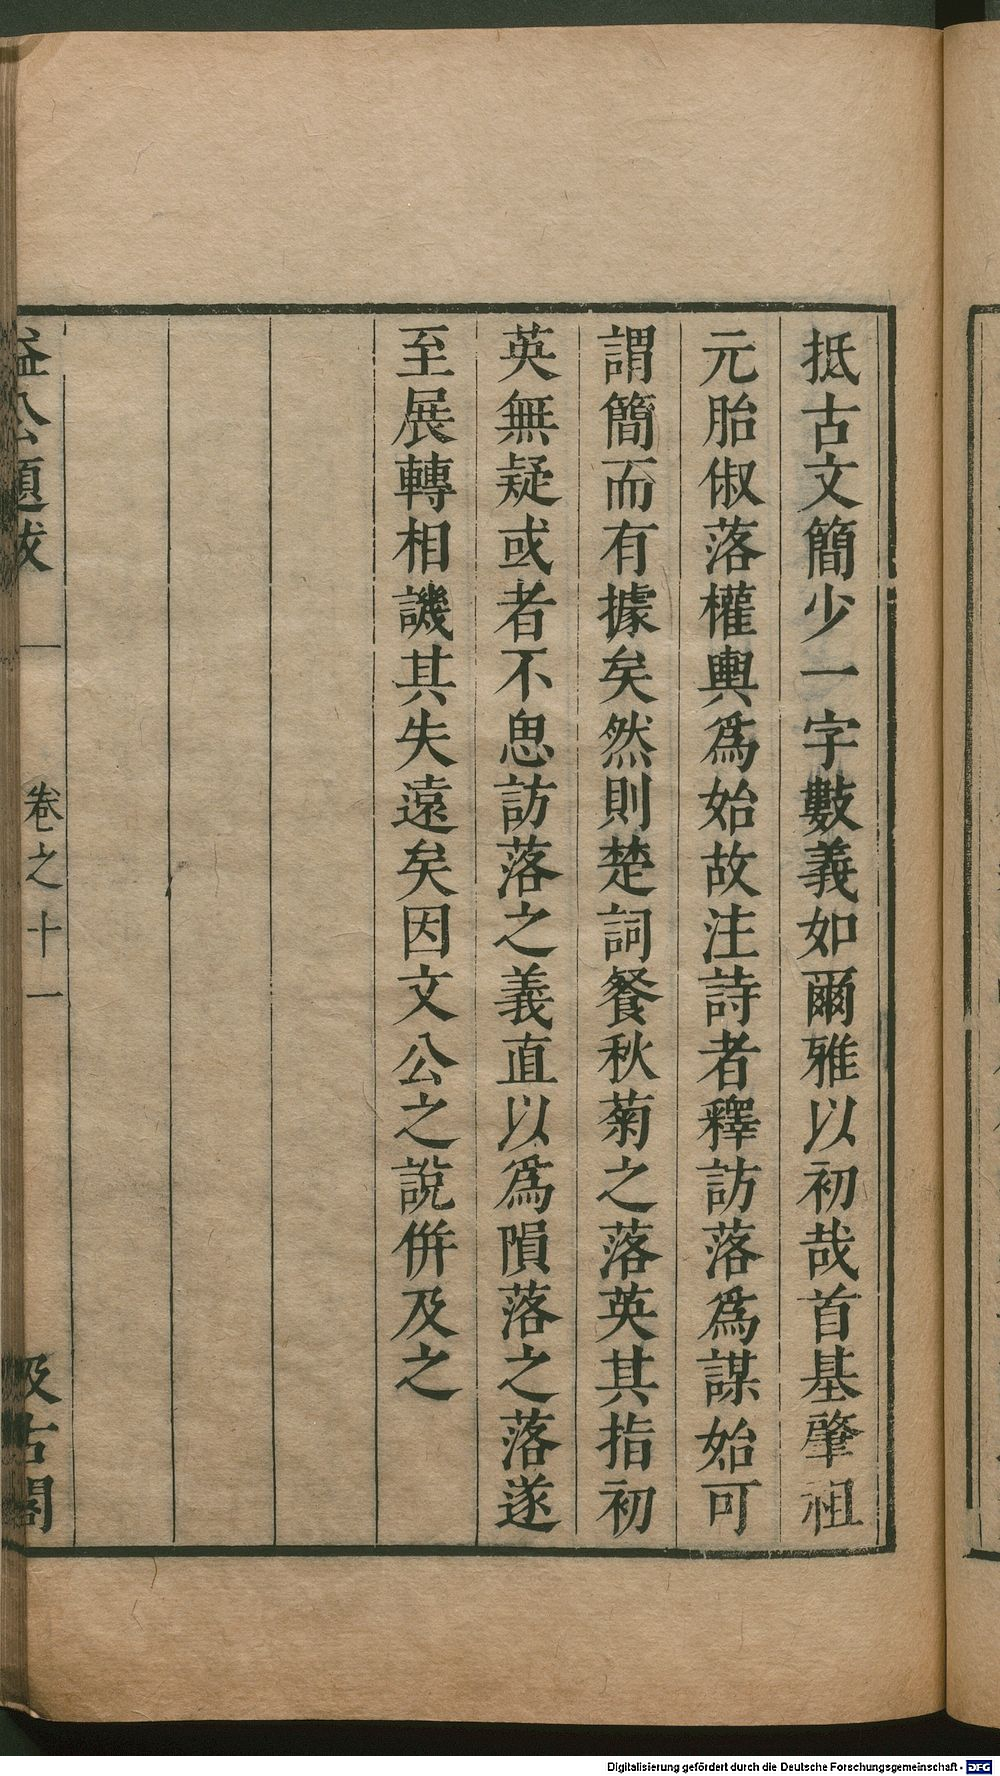 抵古文簡少一字數義如爾雅以初哉首基肇祖
元胎俶落權輿爲始故注詩者釋訪落爲謀始可
謂簡而有據矣然則楚詞餐秋菊之落英其指初
英無疑或者不思訪落之義直以爲隕落之落遂
至展轉相譏其失遠矣因文公之說併及之
益公題跋 卷之十一 汲古閣
Digitalisierung gefördert durch die Deutsche Forschungsgemeinschaft - DFG